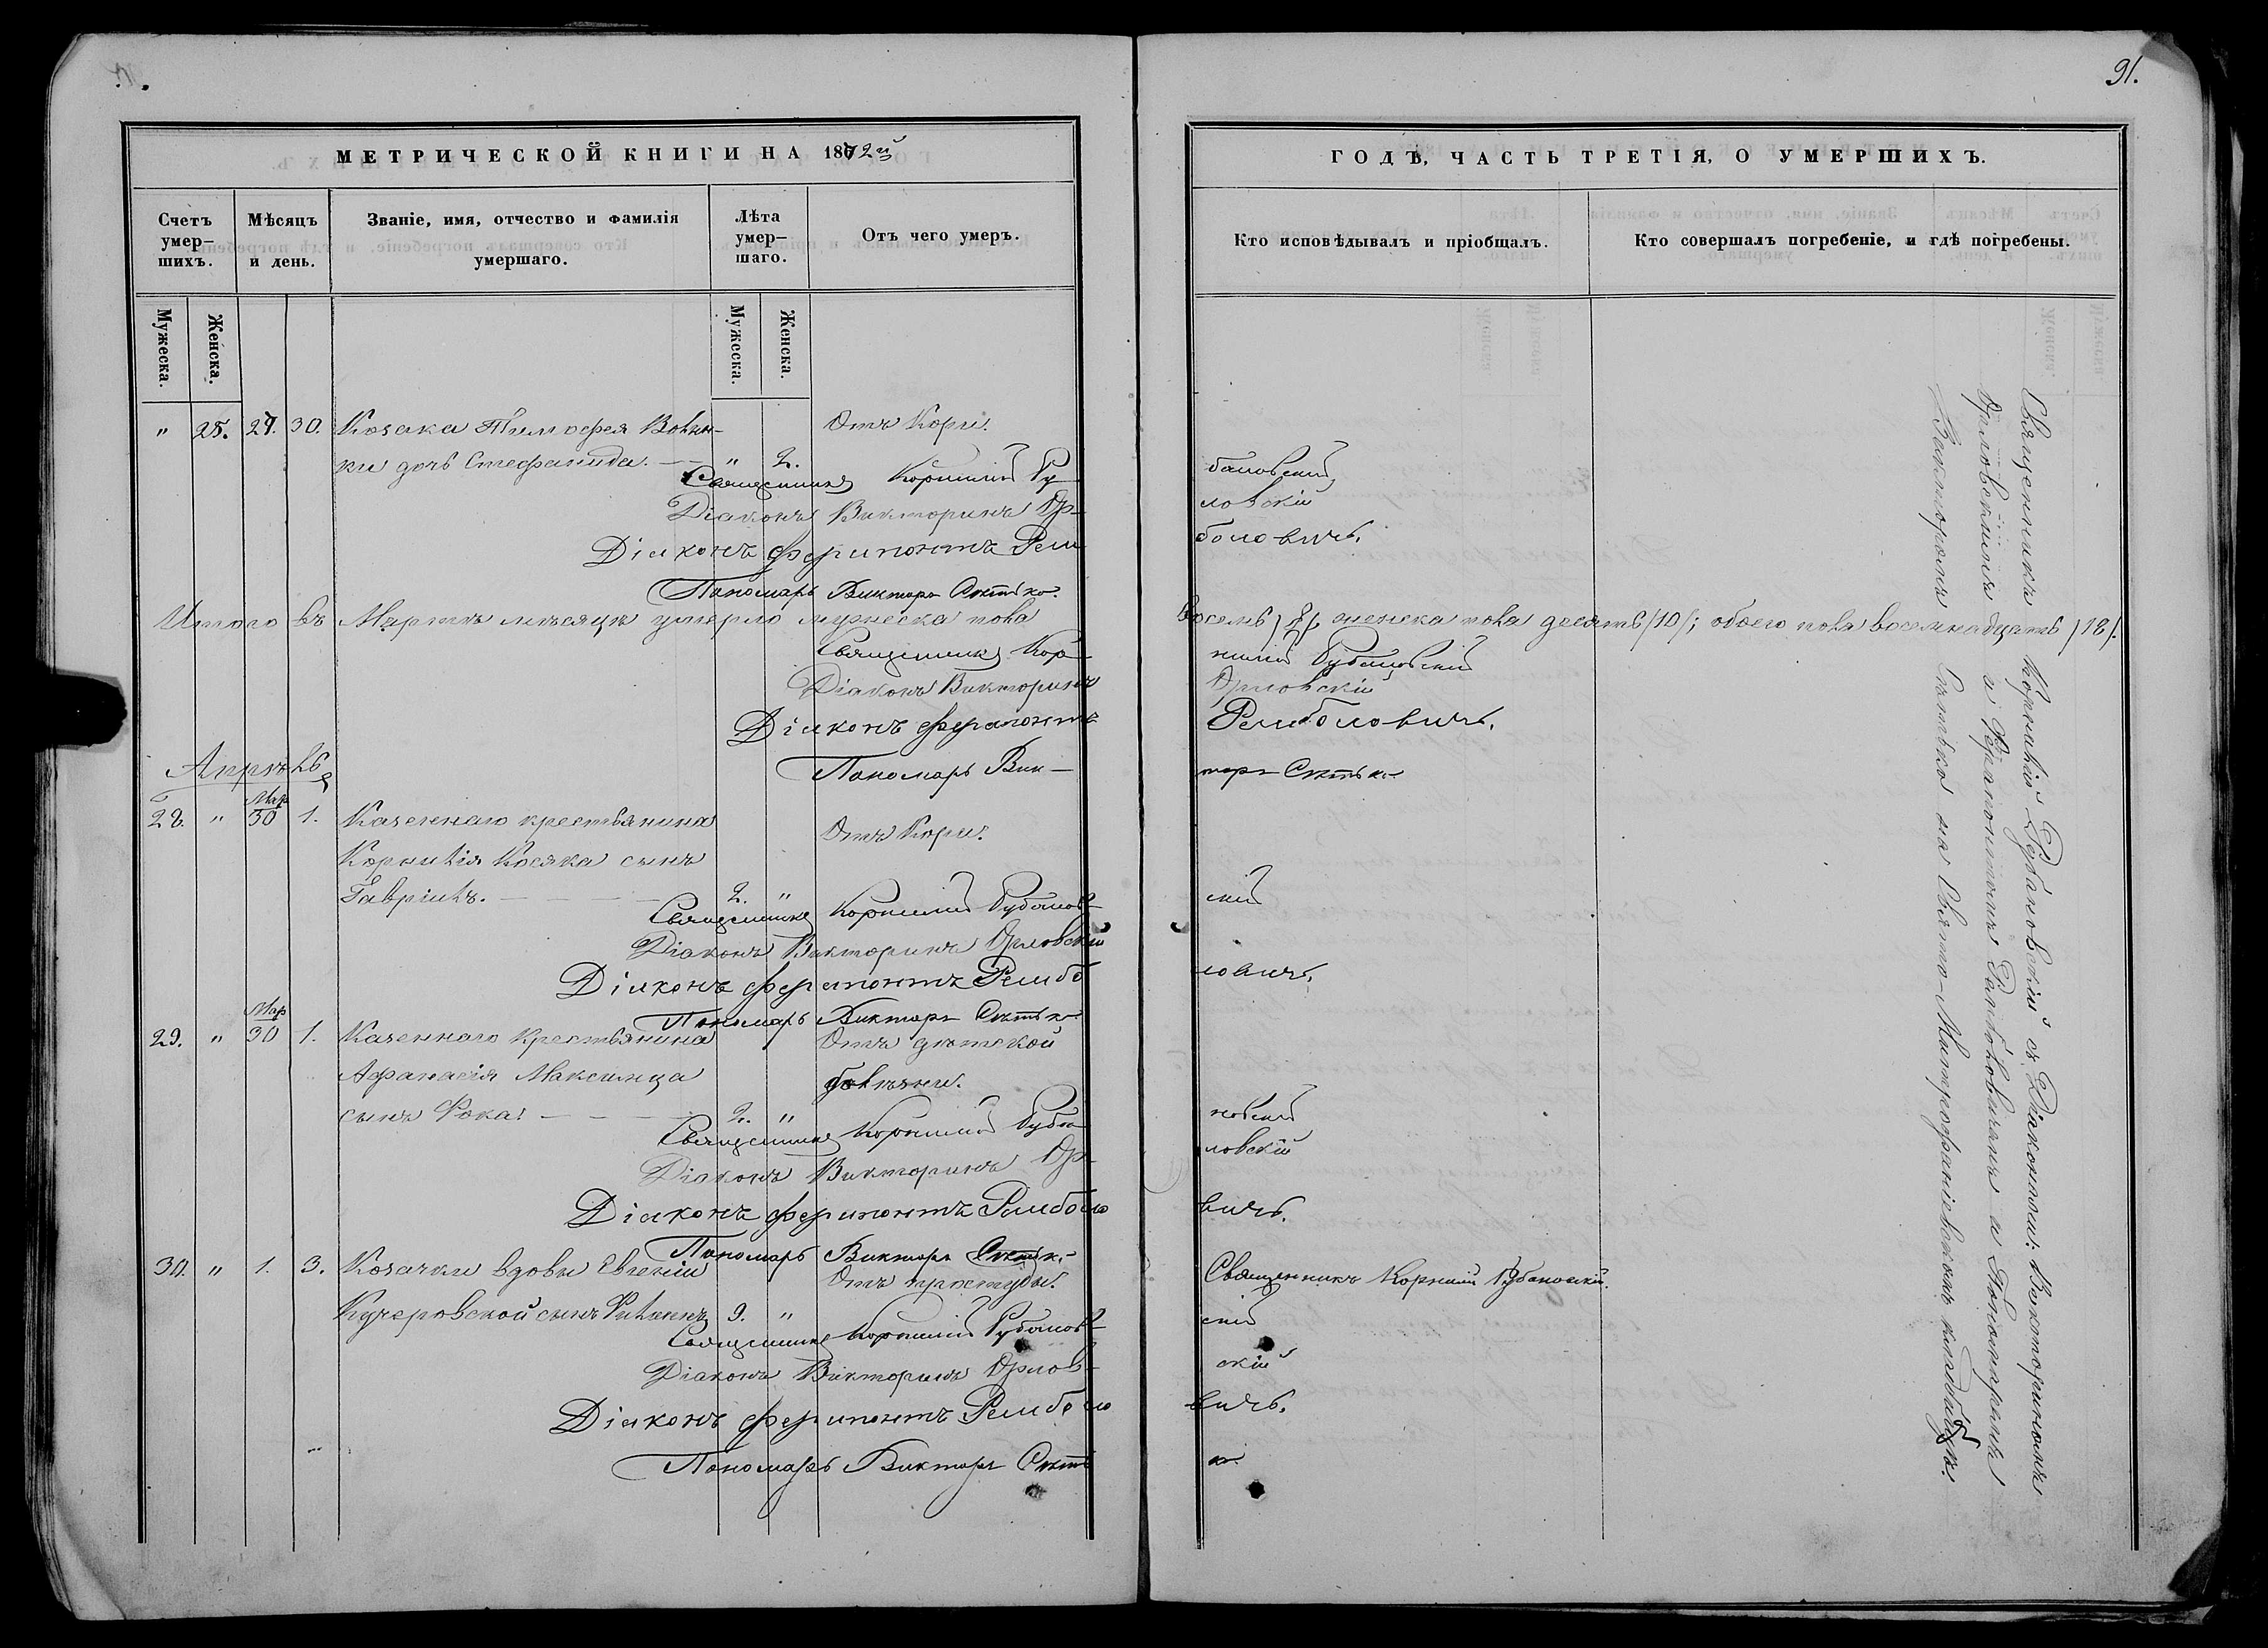 91.
МЕТРИЧЕСКОЙ КНИГИ НА 1872й
ГОДЪ, ЧАСТЬ ТРЕТІЯ, О УМЕРШИХЪ.
Счетъ умер-шихъ.
Мѣсяцъ и день.
Званіе, имя, отчество и фамилія умершаго.
Лѣта умер-шаго.
Отъ чего умеръ.
Кто исповѣдывалъ и пріобщалъ.
Кто совершалъ погребеніе, и гдѣ погребены.
Мужеска.
Женска.
Мужеска.
Женска.
" 25. 27. 30. Козака Тимофея Отъ Кори.
ки дочь Стефанида. " 2.
Священникъ Корнилій Рубановскій
Діаконъ Викторинъ Орловскій
Діаконъ Ферапонтъ Ремболовичъ.
Пономарь Викторъ Снѣтко.
Итого въ Мартѣ мѣсяцѣ умерло мужеска пола восемь /8/, женска пола десять /10/; обоего пола восемнадцать /18/.
Священникъ Корнилій Рубановскій
Діаконъ Викторинъ Орловскій
Діаконъ Ферапонтъ Ремболовичъ.
Апрѣль
Пономарь Викторъ Снѣтко
Мар
28. " 30 1. Казеннаго крестьянина Отъ Кори.
Корнилія Косяка сынъ
Гавріилъ. 2. "
Священникъ Корнилій Рубановскій
Діаконъ Викторинъ Орловскій
Діаконъ Ферапонтъ Ремболовичъ.
Мар
Пономарь Викторъ Снѣтко
29. " 30 1. Казеннаго Крестьянина Отъ дѣтской
Афанасія Максимца болѣзни.
сынъ Фока. 2. "
Священникъ Корнилій Рубановскій
Діаконъ Викторинъ Орловскій
Діаконъ Ферапонтъ Ремболовичъ.
Пономарь Викторъ Снѣтко
30. " 1. 3. Козачки вдовы Евгеніи Отъ Священникъ Корнилій Рубановскій.
Кучеровской сынъ 9. "
Священникъ Корнилій Рубановскій
Діаконъ Викторинъ Орловскій
Діаконъ Ферапонтъ Ремболовичъ.
Пономарь Викторъ Снѣтко
Священникъ Корнилій Рубановскій съ Діаконами: Викториномъ
Орловскимъ и Ферапонтомъ Ремболовичемъ и Пономаремъ
Викторомъ Снѣтко на Свято-Митрофаніевскомъ кладбищѣ.